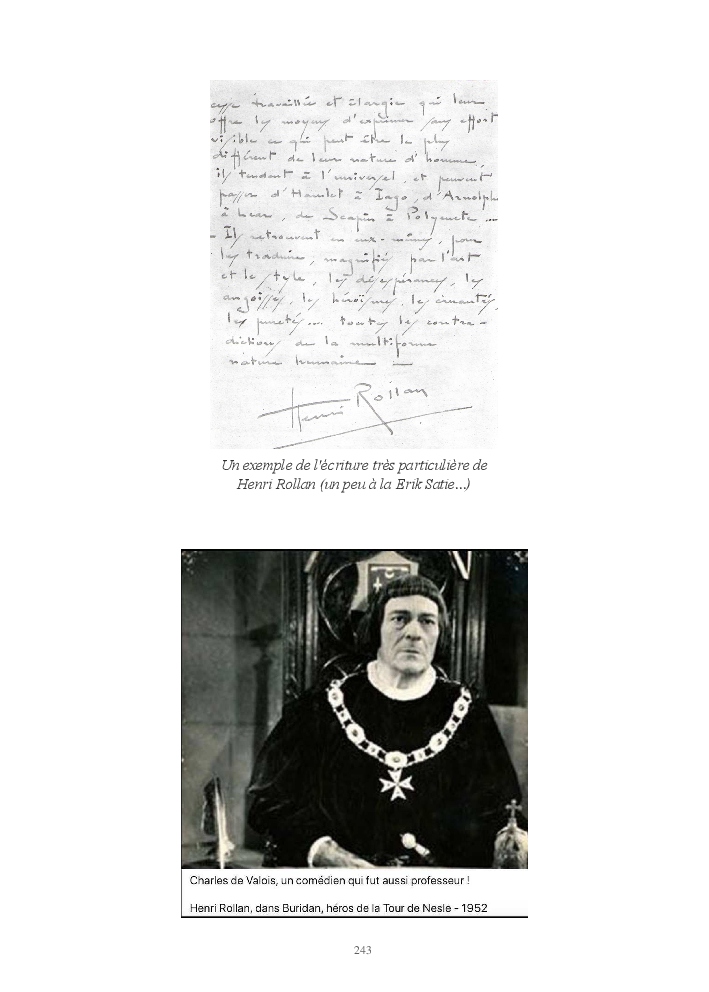 travaillée et élargie qui leur
offre les moyens d'exprimer sans effort
visible ce qui peut être le plus
différent de leur nature d'homme,
ils tendent à l'universel, et peuvent
passer d'Hamlet à Iago, d'Arnolphe
à Lear, de Scapin à Polyeucte ...
- Ils retrouvent en eux-mêmes, pour
les traduire, magnifiés par l'art
et le style, les désespérances, les
angoisses, les héroïsmes, les cruautés,
les puretés... toutes les contra-
dictions de la multiforme
nature humaine —
Henri Rollan
Un exemple de l'écriture très particulière de
Henri Rollan (un peu à la Erik Satie...)
Charles de Valois, un comédien qui fut aussi professeur !
Henri Rollan, dans Buridan, héros de la Tour de Nesle - 1952
243